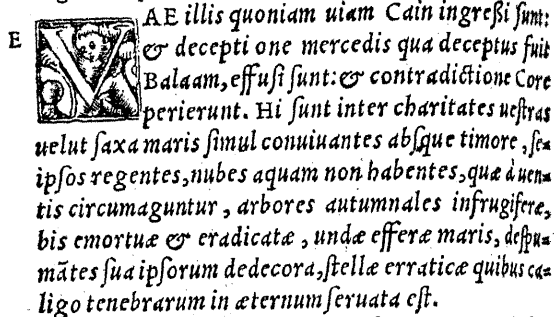 VAE illis quoniam uiam Cain ingreßi ſunt:
E & decepti one mercedis qua deceptus fuit
Balaam, effuſi ſunt: & contradictione Core
perierunt. Hi ſunt inter charitates ueſtras
uelut ſaxa maris ſimul conuiuantes abſque timore, ſe-
ipſos regentes, nubes aquam non habentes, quæ à uen-
tis circumaguntur, arbores autumnales infrugiferæ,
bis emortuæ & eradicatæ, undæ efferæ maris, deſpu-
mātes ſua ipſorum dedecora, ſtellæ erraticæ quibus ca-
ligo tenebrarum in æternum ſeruata eſt.